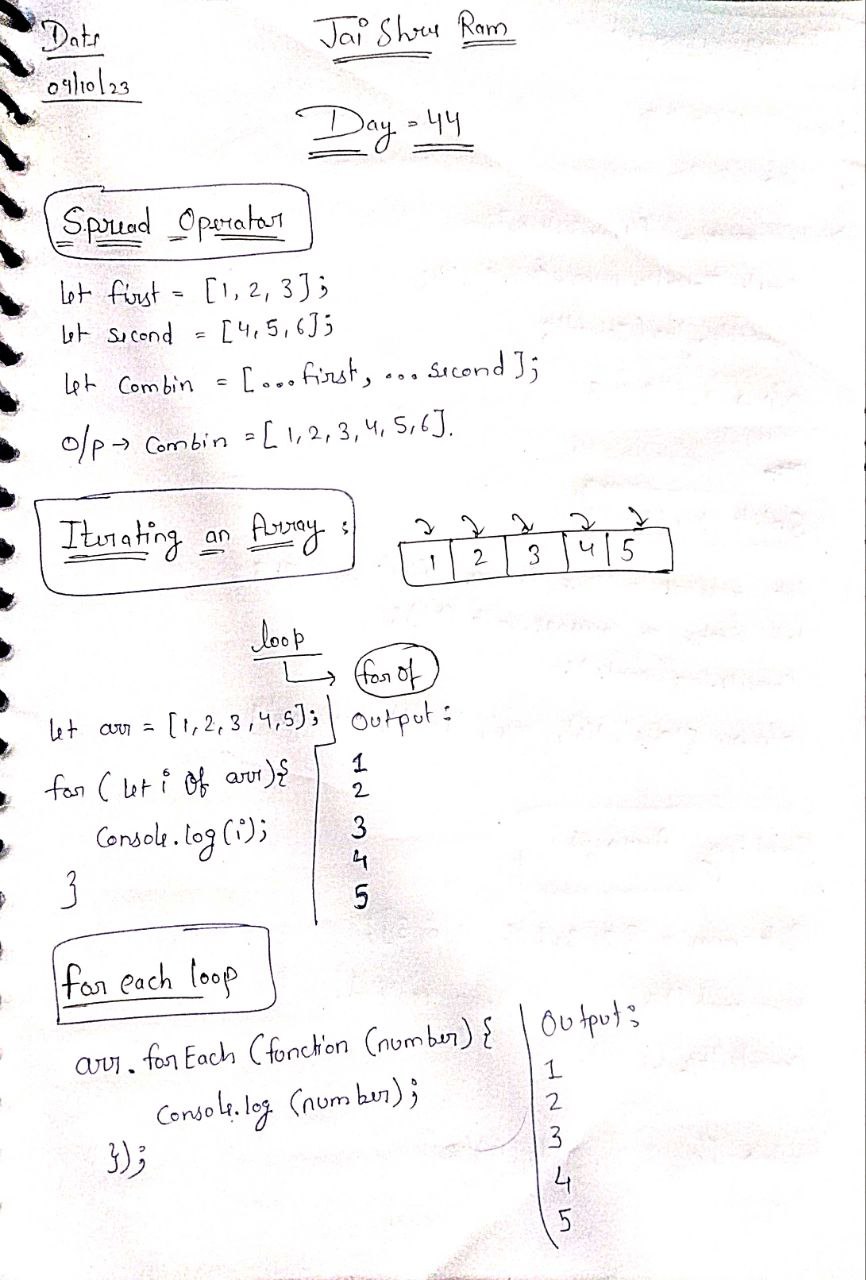 Date
09/10/23
Jai Shree Ram
Day = 44
Spread Operator
let first = [1, 2, 3];
let second = [4, 5, 6];
let Combin = [...first, ...second];
O/p → Combin = [1, 2, 3, 4, 5, 6].
Iterating an Array :
1 2 3 4 5
loop
for of
let arr = [1, 2, 3, 4, 5];
for ( let i of arr) {
Console.log(i);
}
Output :
1
2
3
4
5
for each loop
arr.forEach (function (number) {
Console.log (number);
});
Output :
1
2
3
4
5